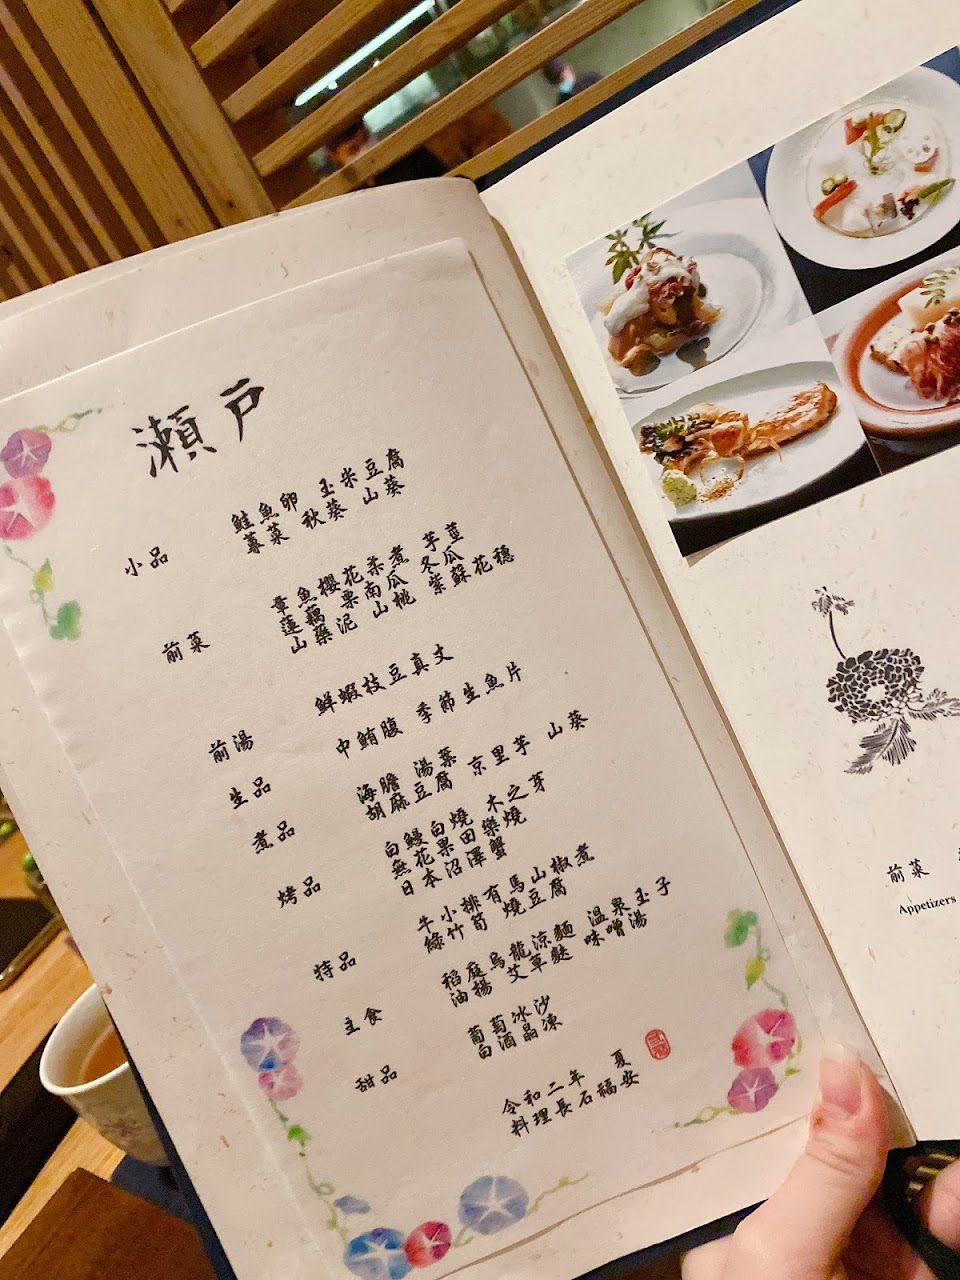 瀨戶
小品
鮭魚卵 玉米豆腐
蓴菜 秋葵 山葵
前菜
章魚櫻花柔煮 芋莖
蓮藕 栗南瓜 冬瓜
山藥泥 山桃 紫蘇花穗
前湯
鮮蝦枝豆真丈
生品
中鮪腹 季節生魚片
煮品
海膽 湯葉
胡麻豆腐 京里芋 山葵
烤品
白鰻白燒 木之芽
無花果田樂燒
日本沼澤蟹
特品
牛小排有馬山椒煮
綠竹筍 燒豆腐
主食
稻庭烏龍涼麵 溫泉玉子
油揚 艾草麩 味噌湯
甜品
葡萄冰沙
白酒晶凍
令和二年 夏
料理長石福安
前菜
Appetizers